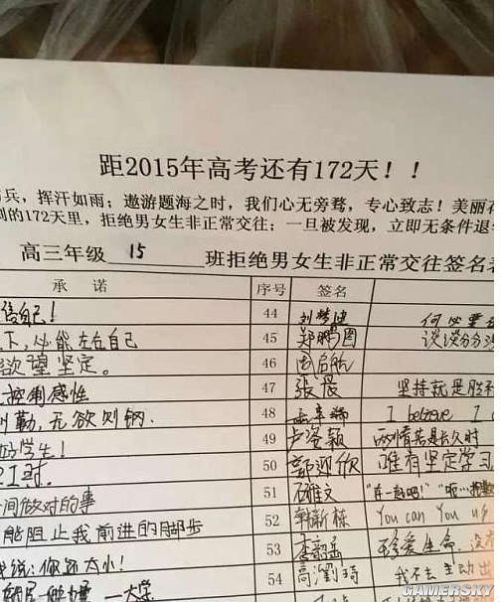 距2015年高考还有172天！！
兵，挥汗如雨；遨游题海之时，我们心无旁骛，专心致志！美丽
的172天里，拒绝男女生非正常交往；一旦被发现，立即无条件退
高三年级 15 班拒绝男女生非正常交往签名
承 诺 序号 签名
信自己！ 44
下，必能左右自己 45 郑鹏图
欲望坚定。 46 周启航
控制感性 47 张晨 坚持就是胜
勤，无欲则钢 48 I believe I
好学生！ 49 卢洛颖 两情若是久长时
50 郭迎欣 唯有坚定学习
间做对的事 51 石雅文 "在一起吧！"
能阻止我前进的脚步 52 韩新栋 You can You up
说：你还太小！ 53 珍爱生命，
大学 54 我不去主动
GAMERSKY